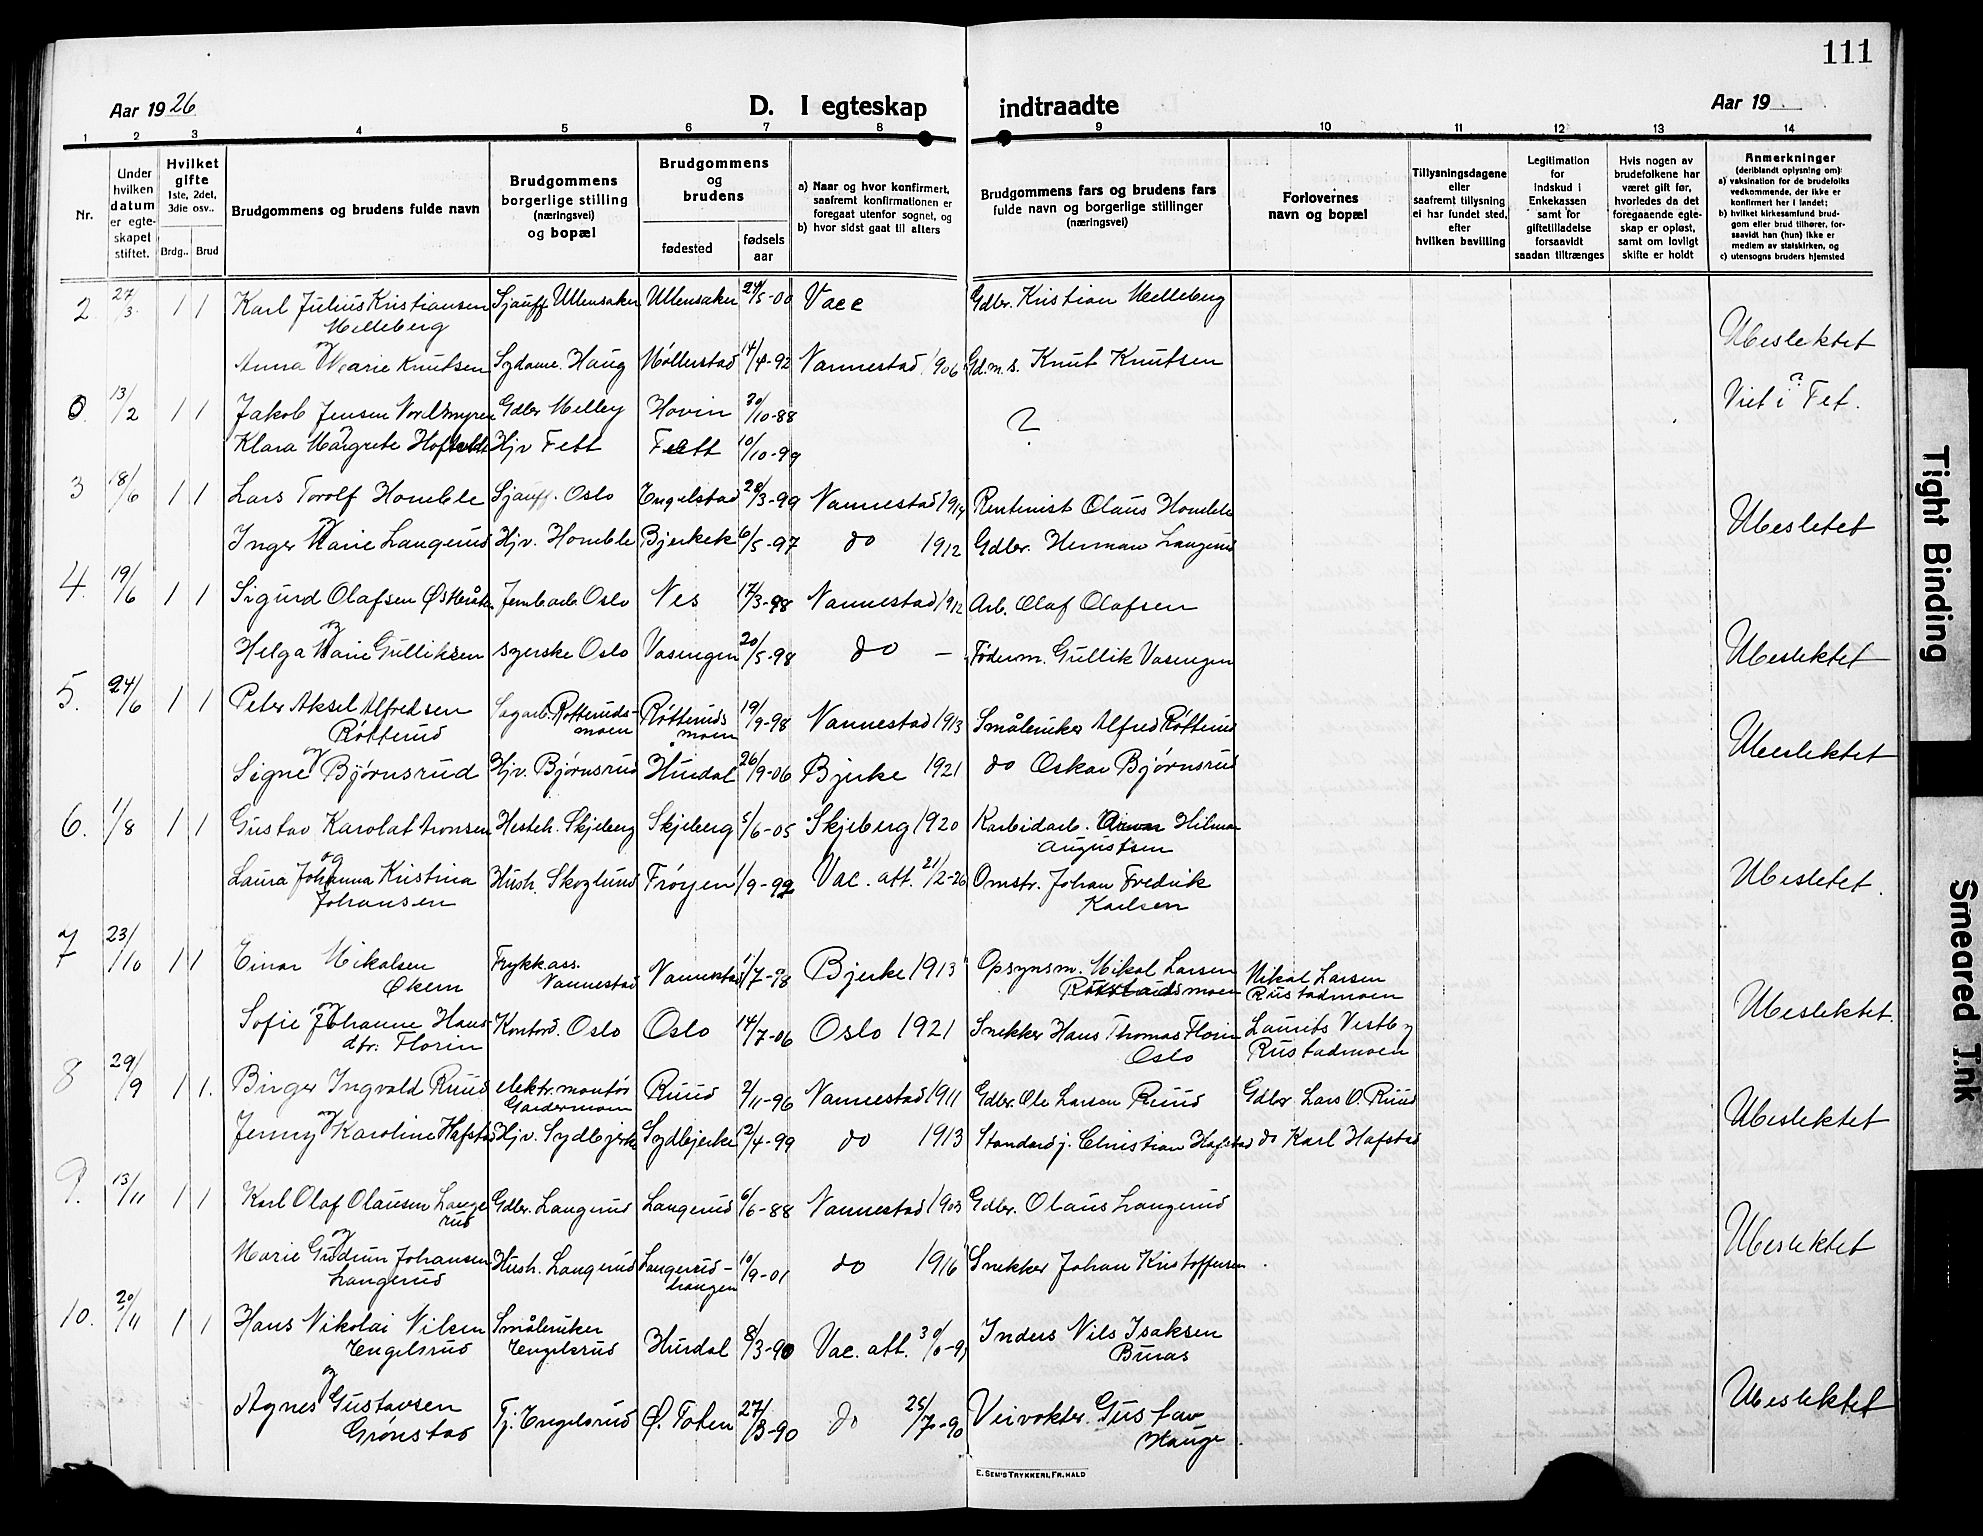 111
Aar 1926
D. I egteskap indtraadte
Aar 19
1 2 3 4 5 6 7 8 9 10 11 12 13 14
Nr.
Under hvilken datum er egteskapet stiftet.
Hvilket gifte 1ste, 2det, 3die osv..
Brdg.. Brud
Brudgommens og brudens fulde navn
Brudgommens borgerlige stilling (næringsvei) og bopæl
Brudgommens og brudens
fødested
fødsels aar
a) Naar og hvor konfirmert, saafremt konfirmationen er foregaat utenfor sognet, og
b) hvor sidst gaat til alters
Brudgommens fars og brudens fars fulde navn og borgerlige stillinger (næringsvei)
Forlovernes navn og bopæl
Tillysningsdagene eller saafremt tillysning ei har fundet sted, efter hvilken bevilling
Legitimation for Indskud i Enkekassen samt for giftetilladelse forsaavidt saadan tiltrænges
Hvis nogen av brudefolkene har været gift før, hvorledes da det foregaaende egteskap er opløst, samt om lovligt skifte er holdt
Anmerkninger (deriblandt oplysning om):
a) vaksination for de brudefolks vedkommende, der ikke er konfirmert her i landet;
b) hvilket kirkesamfund brudgom eller brud tilhører, forsaavidt han (hun) ikke er medlem av statskirken, og
c) utensogns bruders hjemsted
2 27/3 1 1 Karl Julius Kristiansen Sjauff Ullensaker Ullensaker 24/5-00 Vacc Gdbr. Kristian Melleberg
Melleberg
Ubeslektet
og
Anna Marie Knutsen Sydame. Haug Møllerstad 14/4-92 Nannestad 1906 Gd.m.s. Knut Knutsen
0. 13/2 1 1 Jakob Jensen Nordmyren Gdbr Melby Hovin 30/10-88 ? Viet i Fet.
Klara Margrete Hofseth Hjv Fett Fett 10/10-99
3 18/6 1 1 Lars Torolf Homble Sjauff. Oslo Engelstad 28/3-99 Nannestad 1914 Rentenist Olaus Homble
Ubesletet
og
Inger Marie Langerud Hjv. Homble Bjerkek 6/5-97 do 1912 Gdbr. Herman Langerud
4. 19/6 1 1 Sigurd Olafsen Jernb arb Oslo Nes 17/3-98 Nannestad 1912 Arb. Olaf Olafsen
og
Helga Marie Gulliksen syerske Oslo Vasengen 20/5-98 do – Føderm. Gullik Vasengen
Ubeslektet
5. 24/6 1 1 Peter Aksel Alfredsen Sagarb. Røtteruds- Røtteruds 19/9-98 Nannestad 1913 Småbruker Alfred Røtterud
Røtterud moen moen
Ubeslektet
og
Signe Bjørnsrud Hjv. Bjørnsrud Hurdal 26/9-06 Bjerke 1921 do Oskar Bjørnsrud
6. 1/8 1 1 Gustav Karolat Aronsen Hesteh. Skjeberg Skjeberg 5/6-05 Skjeberg 1920 Karbidarb. Hilmar
Augustsen
og
Laura Johanna Kristina Hush. Skoglund Frøyen 1/9-92 Vac. att. 21/2-26 Omstr. Johan Fredrik
Ubesletet.
Johansen Karlsen
7 23/10 1 1 Einar Nikolsen Trykk.ass. Nannestad 1/7-98 Bjerke 1913 Opsynsm. Nikol Larsen Nikol Larsen
Økern Nannestad Rustadsmoen Rustadmoen
og
Sofie Johanne Hans- Kontord. Oslo Oslo 14/7-06 Oslo 1921 Snekker Hans Thomas Florin Laurits Vestby
Ubeslektet.
dtr. Florin Oslo Rustadmoen
8 29/9 1 1. Birger Ingvald Ruud elektr. montør Ruud 2/11-96 Nannestad 1911 Gdbr. Ole Larsen Ruud Gdbr. Lars O. Ruud
Gardermoen
Ubeslektet
og
Jenny Karoline Hafstad Hjv. Sydbjerke Sydbjerke 12/4-99 do 1913 Standardj. Christian Hafstad do Karl Hafstad
9. 13/11 1 1 Karl Olaf Olausen Lange- Gdbr. Langerud Langerud 6/6-88 Nannestad 1903 Gdbr. Olaus Langerud
rud
Ubeslektet
og
Marie Gudrun Johansen Hush. Langerud Langerud- 10/9-01 do 1916 Snekker Johan Kristoffersen
Langerud hangen
10. 20/11 1 1 Hans Nikolai Nilsen Småbruker Hurdal 8/3-90 Vac. att. Inders Nils Isaksen
Engelsrud Engelsrud Buras
og
Agnes Gustavsen Tj. Engelsrud Ø. Toten 27/3-90 do 25/7-90 Veivokter. Gustav
Grønstad Hauge
Ubeslektet
E. SEM'S TRYKKERI, FR.HALD
Tight Binding
Smeared Ink